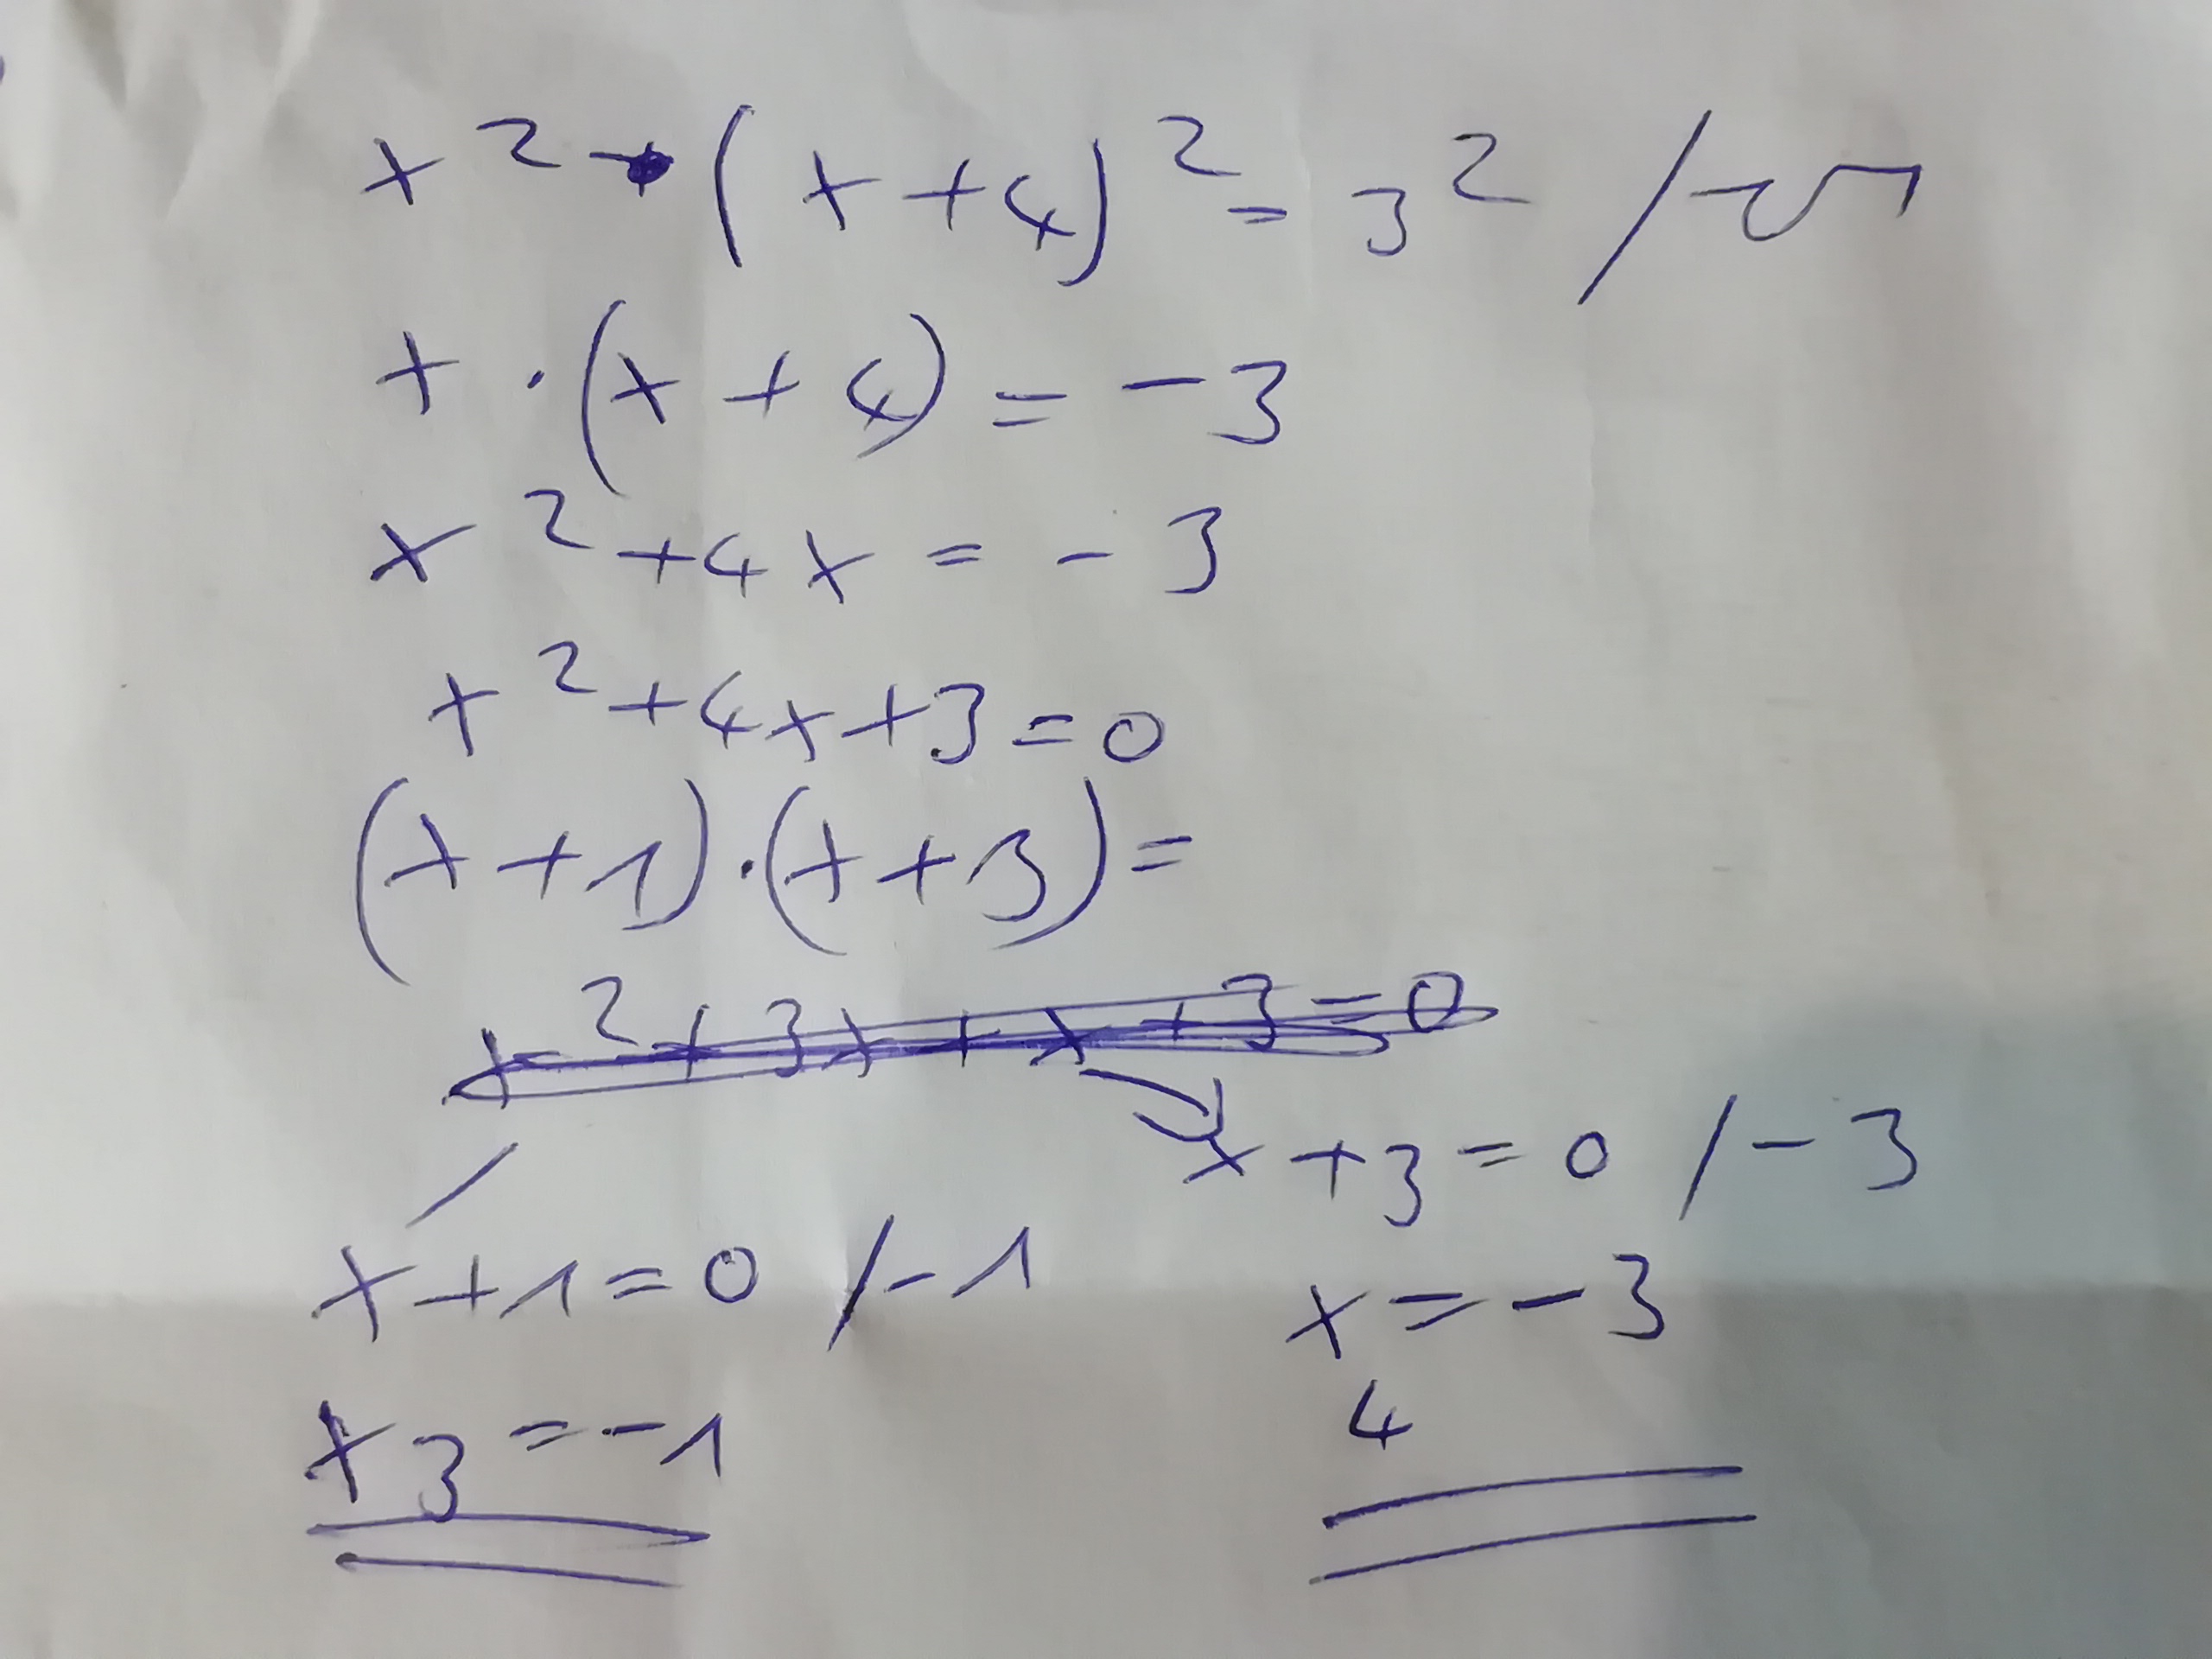 x² · (x + 4)² = 3² / -√
x · (x + 4) = -3
x² + 4x = -3
x² + 4x + 3 = 0
(x + 1) · (x + 3) =
x² + 3x + x + 3 = 0
x + 3 = 0 / -3
x + 1 = 0 / -1
x₄ = -3
x₃ = -1